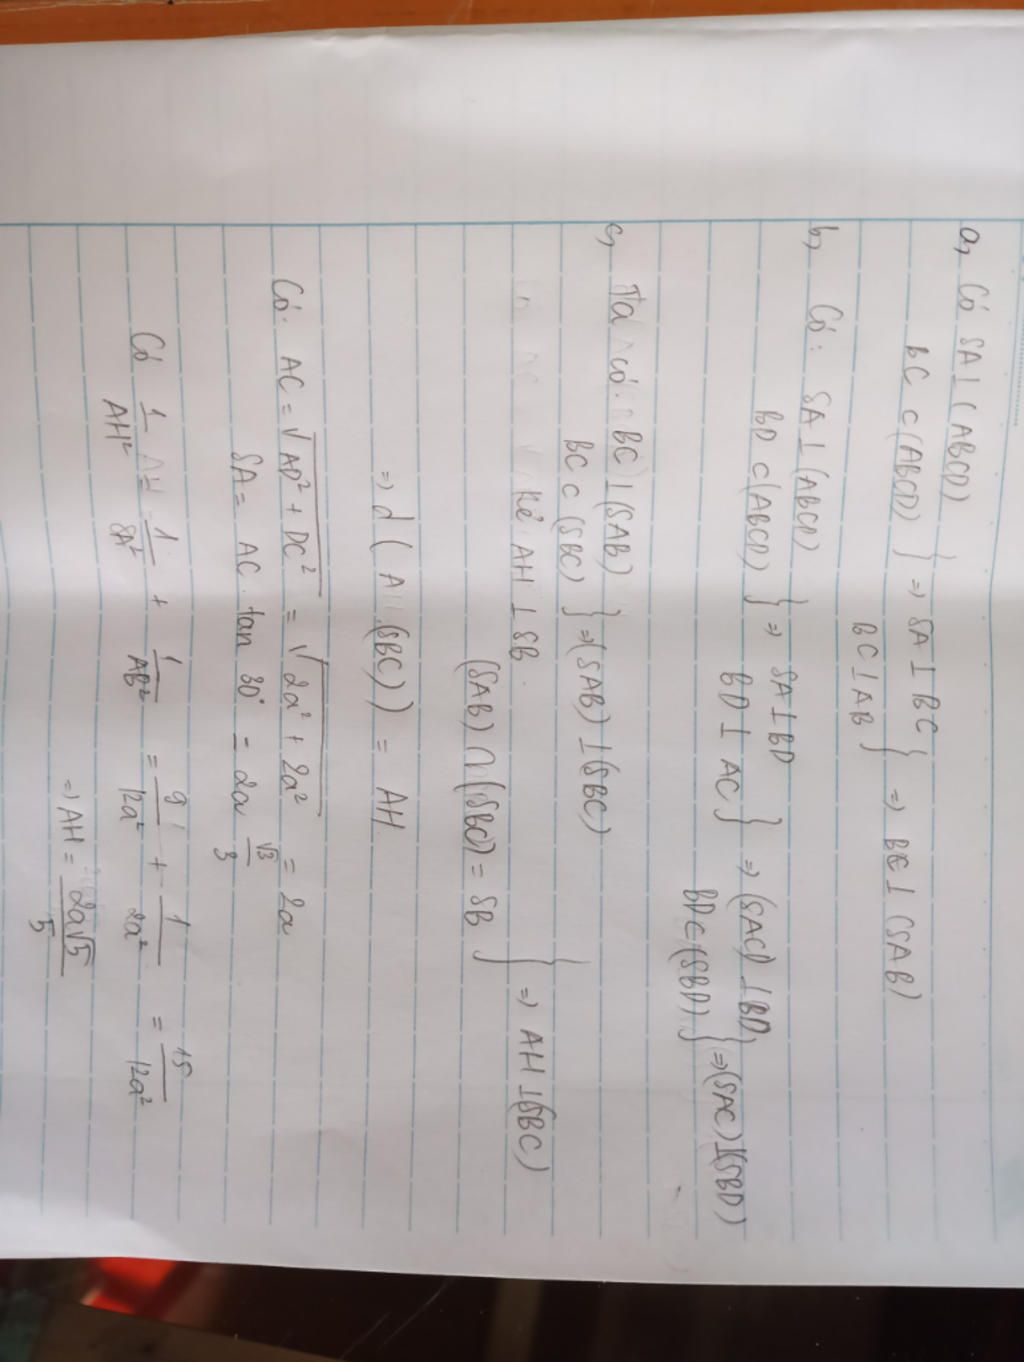 a, Có SA ⊥ (ABCD)
BC ⊂ (ABCD) } => SA ⊥ BC
BC ⊥ AB } => BC ⊥ (SAB)
b, Có: SA ⊥ (ABCD)
BD ⊂ (ABCD) } => SA ⊥ BD
BD ⊥ AC } => (SAC) ⊥ BD
BD ⊂ (SBD) } => (SAC) ⊥ (SBD)
c, Ta có: BC ⊥ (SAB)
BC ⊂ (SBC) } => (SAB) ⊥ (SBC)
Kẻ AH ⊥ SB.
(SAB) ∩ (SBC) = SB } => AH ⊥ (SBC)
=> d (A (SBC)) = AH
Có. AC = √(AD² + DC²) = √(2a² + 2a²) = 2a
SA = AC . tan 30° = 2a √3/3
Có 1/AH² 1/SA² + 1/AB² = 9/12a² + 1/2a² = 15/12a²
=> AH = 2a√5/5